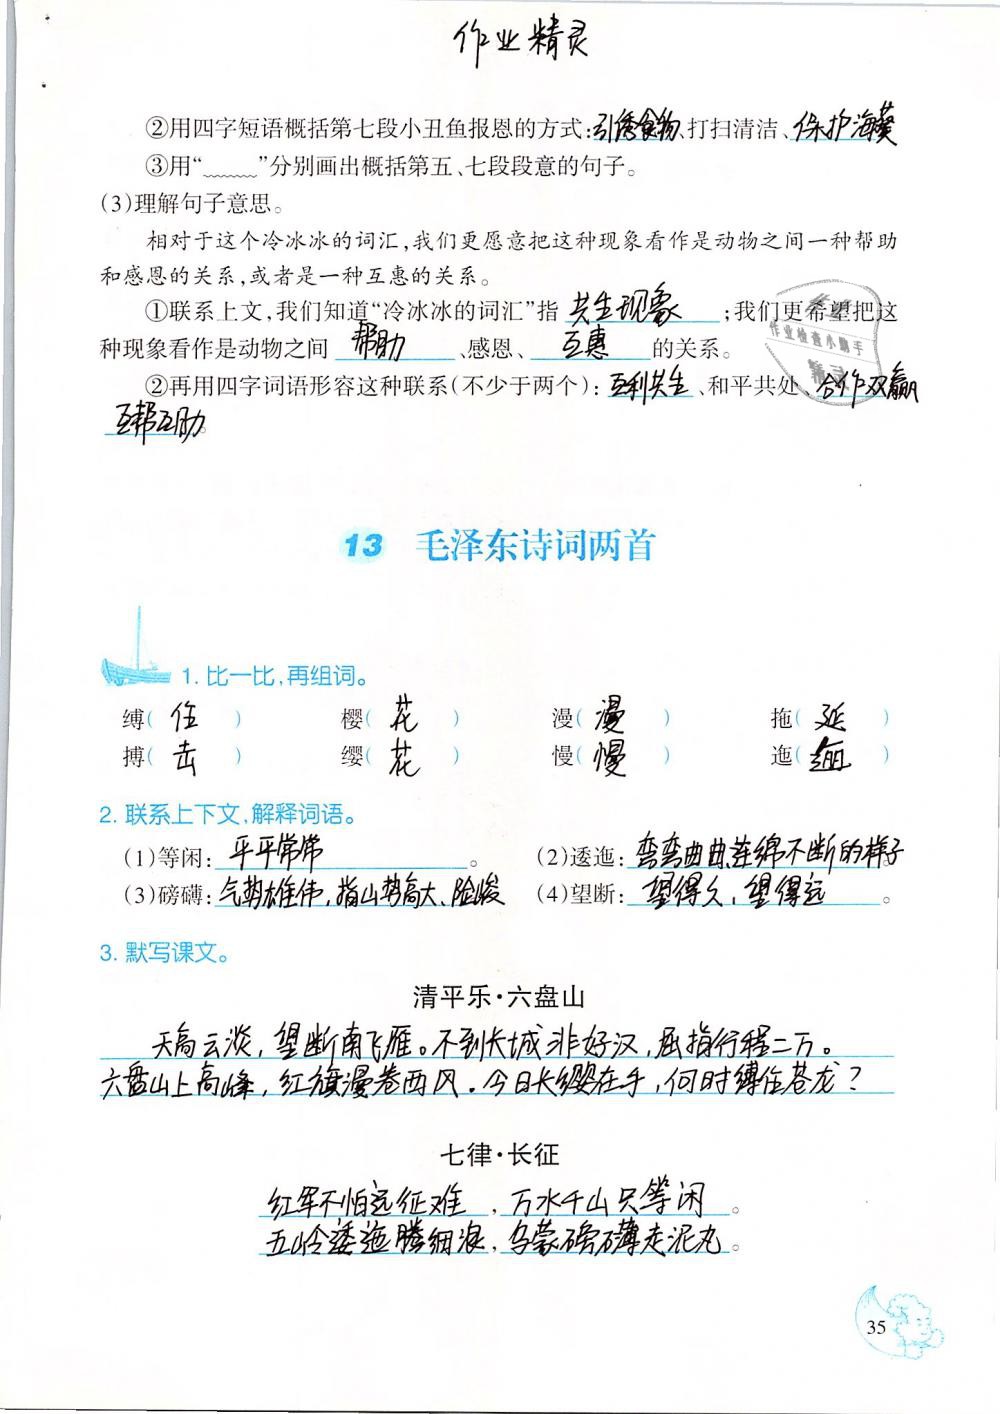 作业精灵
②用四字短语概括第七段小丑鱼报恩的方式:引诱食物、打扫清洁、保护海葵
③用“﹏﹏﹏”分别画出概括第五、七段段意的句子。
(3)理解句子意思。
相对于这个冷冰冰的词汇,我们更愿意把这种现象看作是动物之间一种帮助
和感恩的关系,或者是一种互惠的关系。
①联系上文,我们知道“冷冰冰的词汇”指 共生现象 ;我们更希望把这
种现象看作是动物之间 帮助 、感恩、 互惠 的关系。
作业检查小助手
精灵
②再用四字词语形容这种联系(不少于两个): 互利共生 、和平共处、合作双赢
互帮互助。
13 毛泽东诗词两首
1. 比一比,再组词。
缚( 住 ) 樱( 花 ) 漫( 漫 ) 拖( 延 )
搏( 击 ) 缨( 花 ) 慢( 慢 ) 迤( 逦 )
2. 联系上下文,解释词语。
(1)等闲: 平平常常 。 (2)逶迤: 弯弯曲曲、连绵不断的样子
(3)磅礴: 气势雄伟,指山势高大、险峻 (4)望断: 望得久,望得远 。
3. 默写课文。
清平乐·六盘山
天高云淡,望断南飞雁。不到长城非好汉,屈指行程二万。
六盘山上高峰,红旗漫卷西风。今日长缨在手,何时缚住苍龙?
七律·长征
红军不怕远征难 ,万水千山只等闲 。
五岭逶迤腾细浪 ,乌蒙磅礴走泥丸 。
35